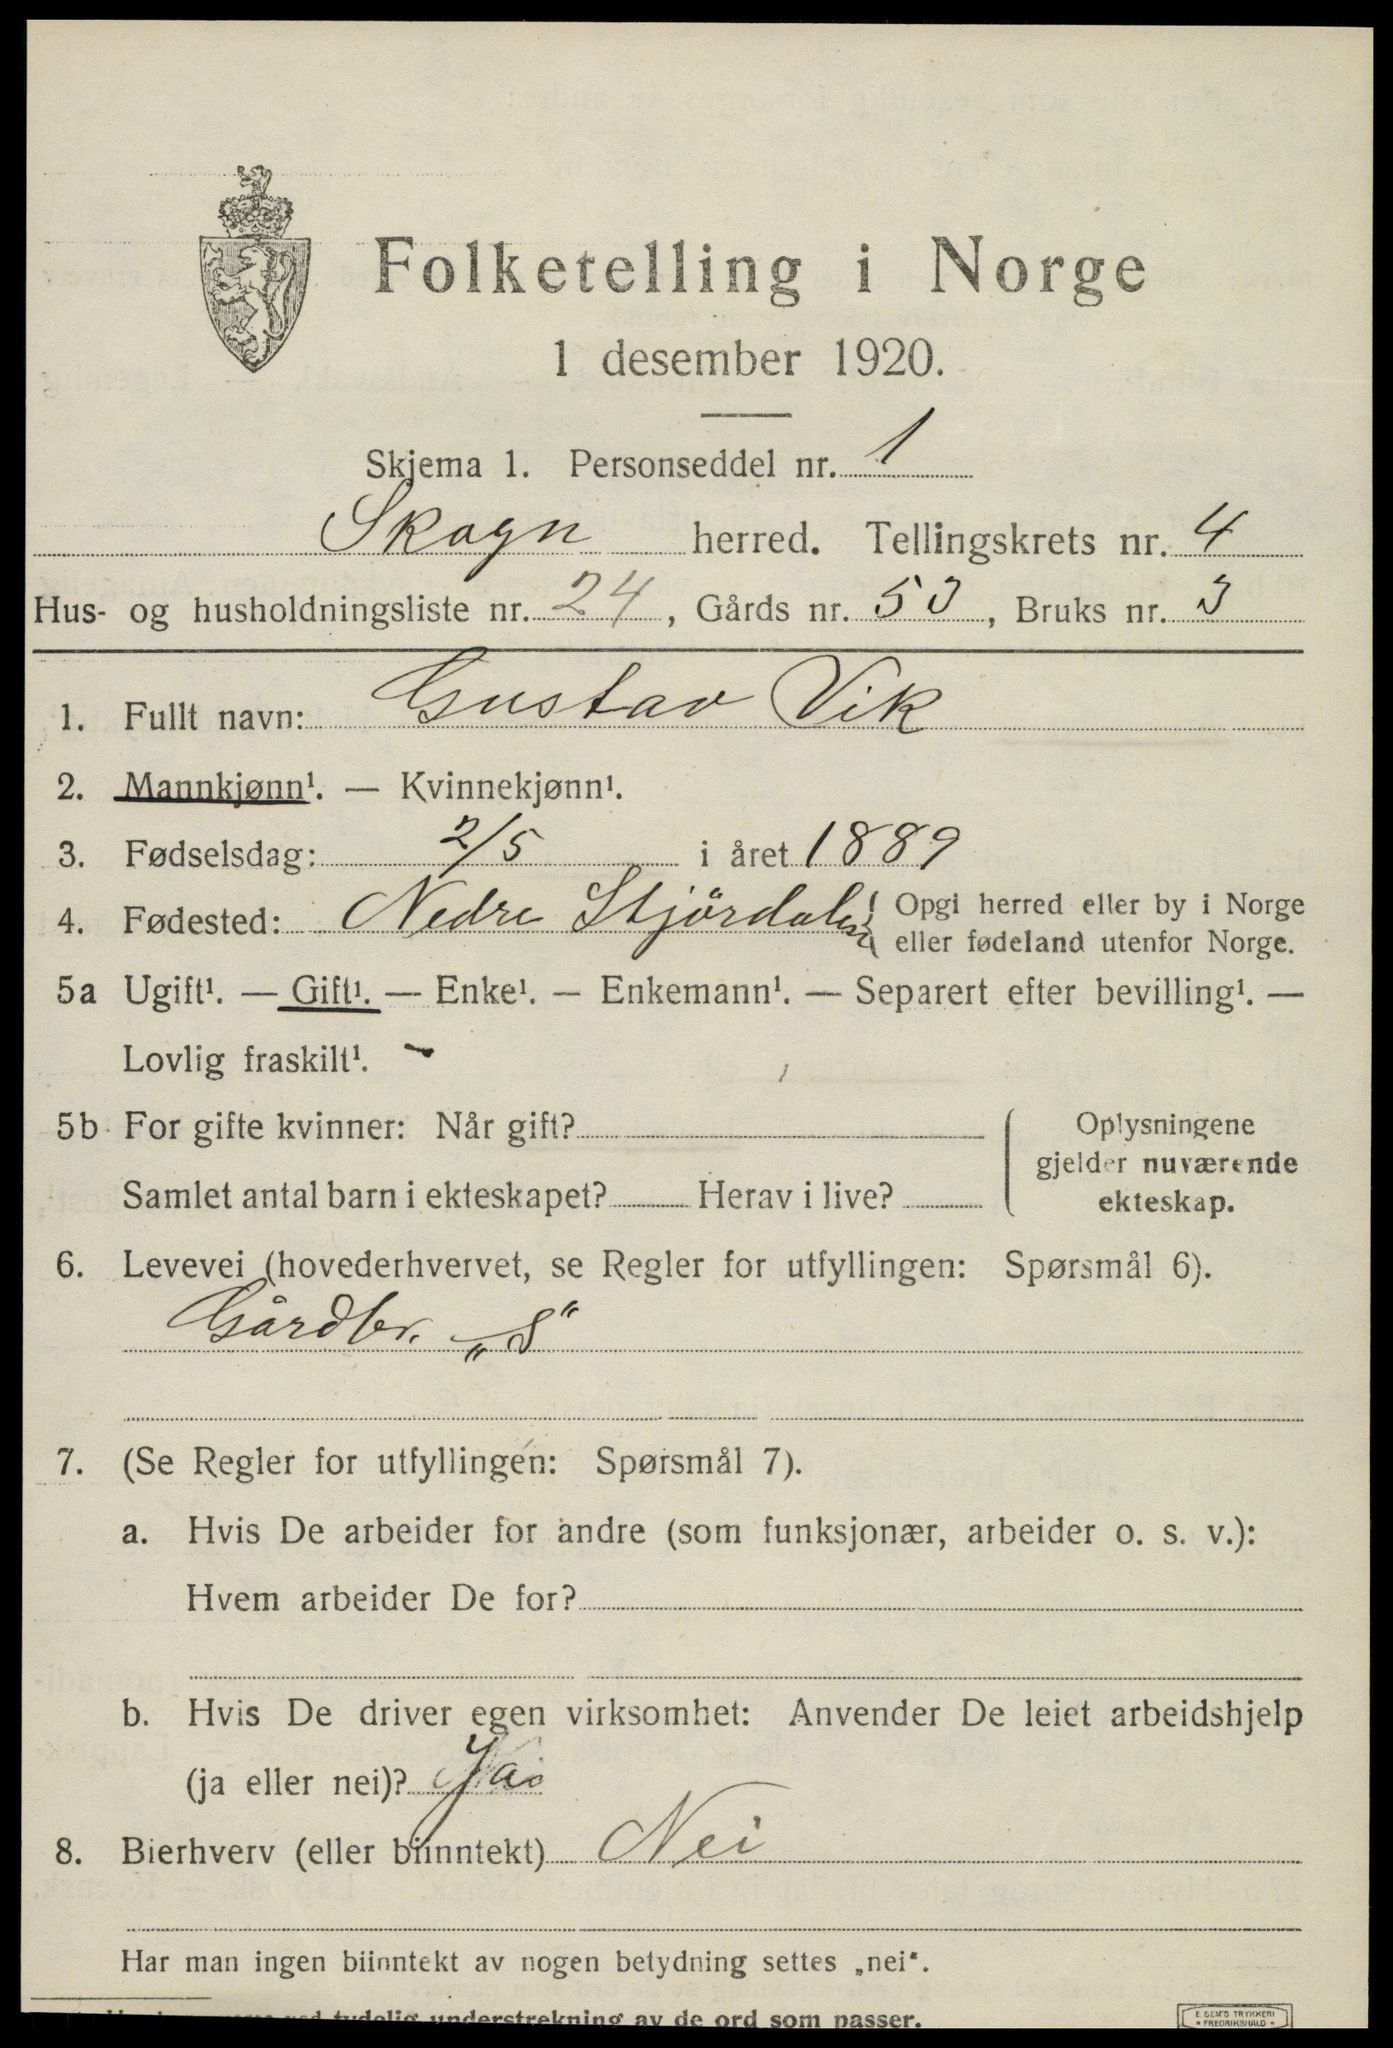 Folketelling i Norge
1 desember 1920.
Skjema 1. Personseddel nr. 1
Skogn herred. Tellingskrets nr. 4
Hus- og husholdningsliste nr. 24, Gårds nr. 53, Bruks nr. 3
1. Fullt navn: Gustav Vik
2. Mannkjønn¹. — Kvinnekjønn¹.
3. Fødselsdag: 2/5 i året 1889
4. Fødested: Nedre Stjördalen { Opgi herred eller by i Norge
eller fødeland utenfor Norge.
5a Ugift¹. — Gift¹. — Enke¹. — Enkemann¹. — Separert efter bevilling¹. —
Lovlig fraskilt¹.
5b For gifte kvinner: Når gift?
Samlet antal barn i ekteskapet? Herav i live?
Oplysningene
gjelder nuværende
ekteskap.
6. Levevei (hovederhvervet, se Regler for utfyllingen: Spørsmål 6).
Gårdbr. „S"
7. (Se Regler for utfyllingen: Spørsmål 7).
a. Hvis De arbeider for andre (som funksjonær, arbeider o. s. v.):
Hvem arbeider De for?
b. Hvis De driver egen virksomhet: Anvender De leiet arbeidshjelp
(ja eller nei)? Ja
8. Bierhverv (eller biinntekt) Nei
Har man ingen biinntekt av nogen betydning settes „nei".
tydelig understrekning av de ord som passer.
E. SEM'S TRYKKERI
FREDRIKSHALD